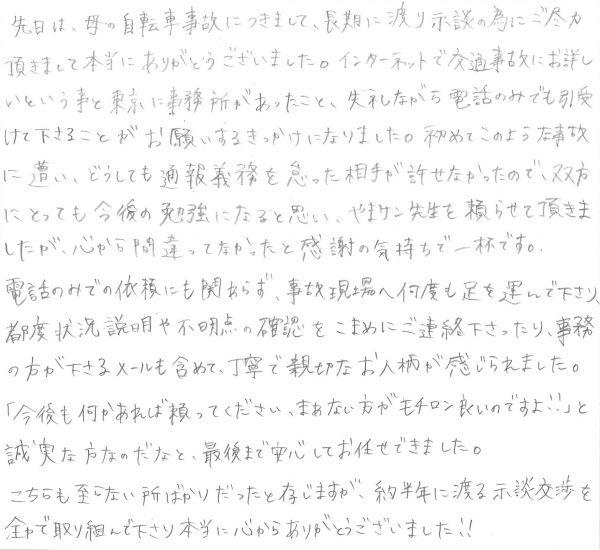 先日は、母の自転車事故につきまして、長期に渡り示談の為にご尽力
頂きまして本当にありがとうございました。インターネットで交通事故にお詳し
いという事と東京に事務所があったこと、失礼しながら電話のみでも引受
けて下さることがお願いするきっかけになりました。初めてこのような事故
に遭い、どうしても通報義務を怠った相手が許せなかったので、双方
にとっても今後の勉強になると思い、やまケン先生を頼らせて頂きま
したが、心から間違ってなかったと感謝の気持ちで一杯です。
電話のみでの依頼にも関わらず、事故現場へ何度も足を運んで下さり、
都度状況説明や不明点の確認をこまめにご連絡下さったり、事務
の方が下さるメールも含めて、丁寧で親切なお人柄が感じられました。
「今後も何かあれば頼ってください、まぁない方がモチロン良いのですよ!!」と
誠実な方なのだなと、最後まで安心してお任せできました。
こちらも至らない所ばかりだったと存じますが、約半年に渡る示談交渉を
全力で取り組んで下さり本当に心からありがとうございました!!